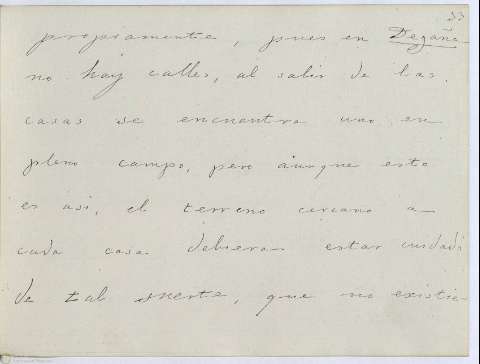 33
propiamente, pues en Degaña
no hay calles, al salir de las
casas se encuentra uno en
pleno campo, pero aunque esto
es asi, el terreno cercano a
cada casa debiera estar cuidado
de tal suerte, que no existie-